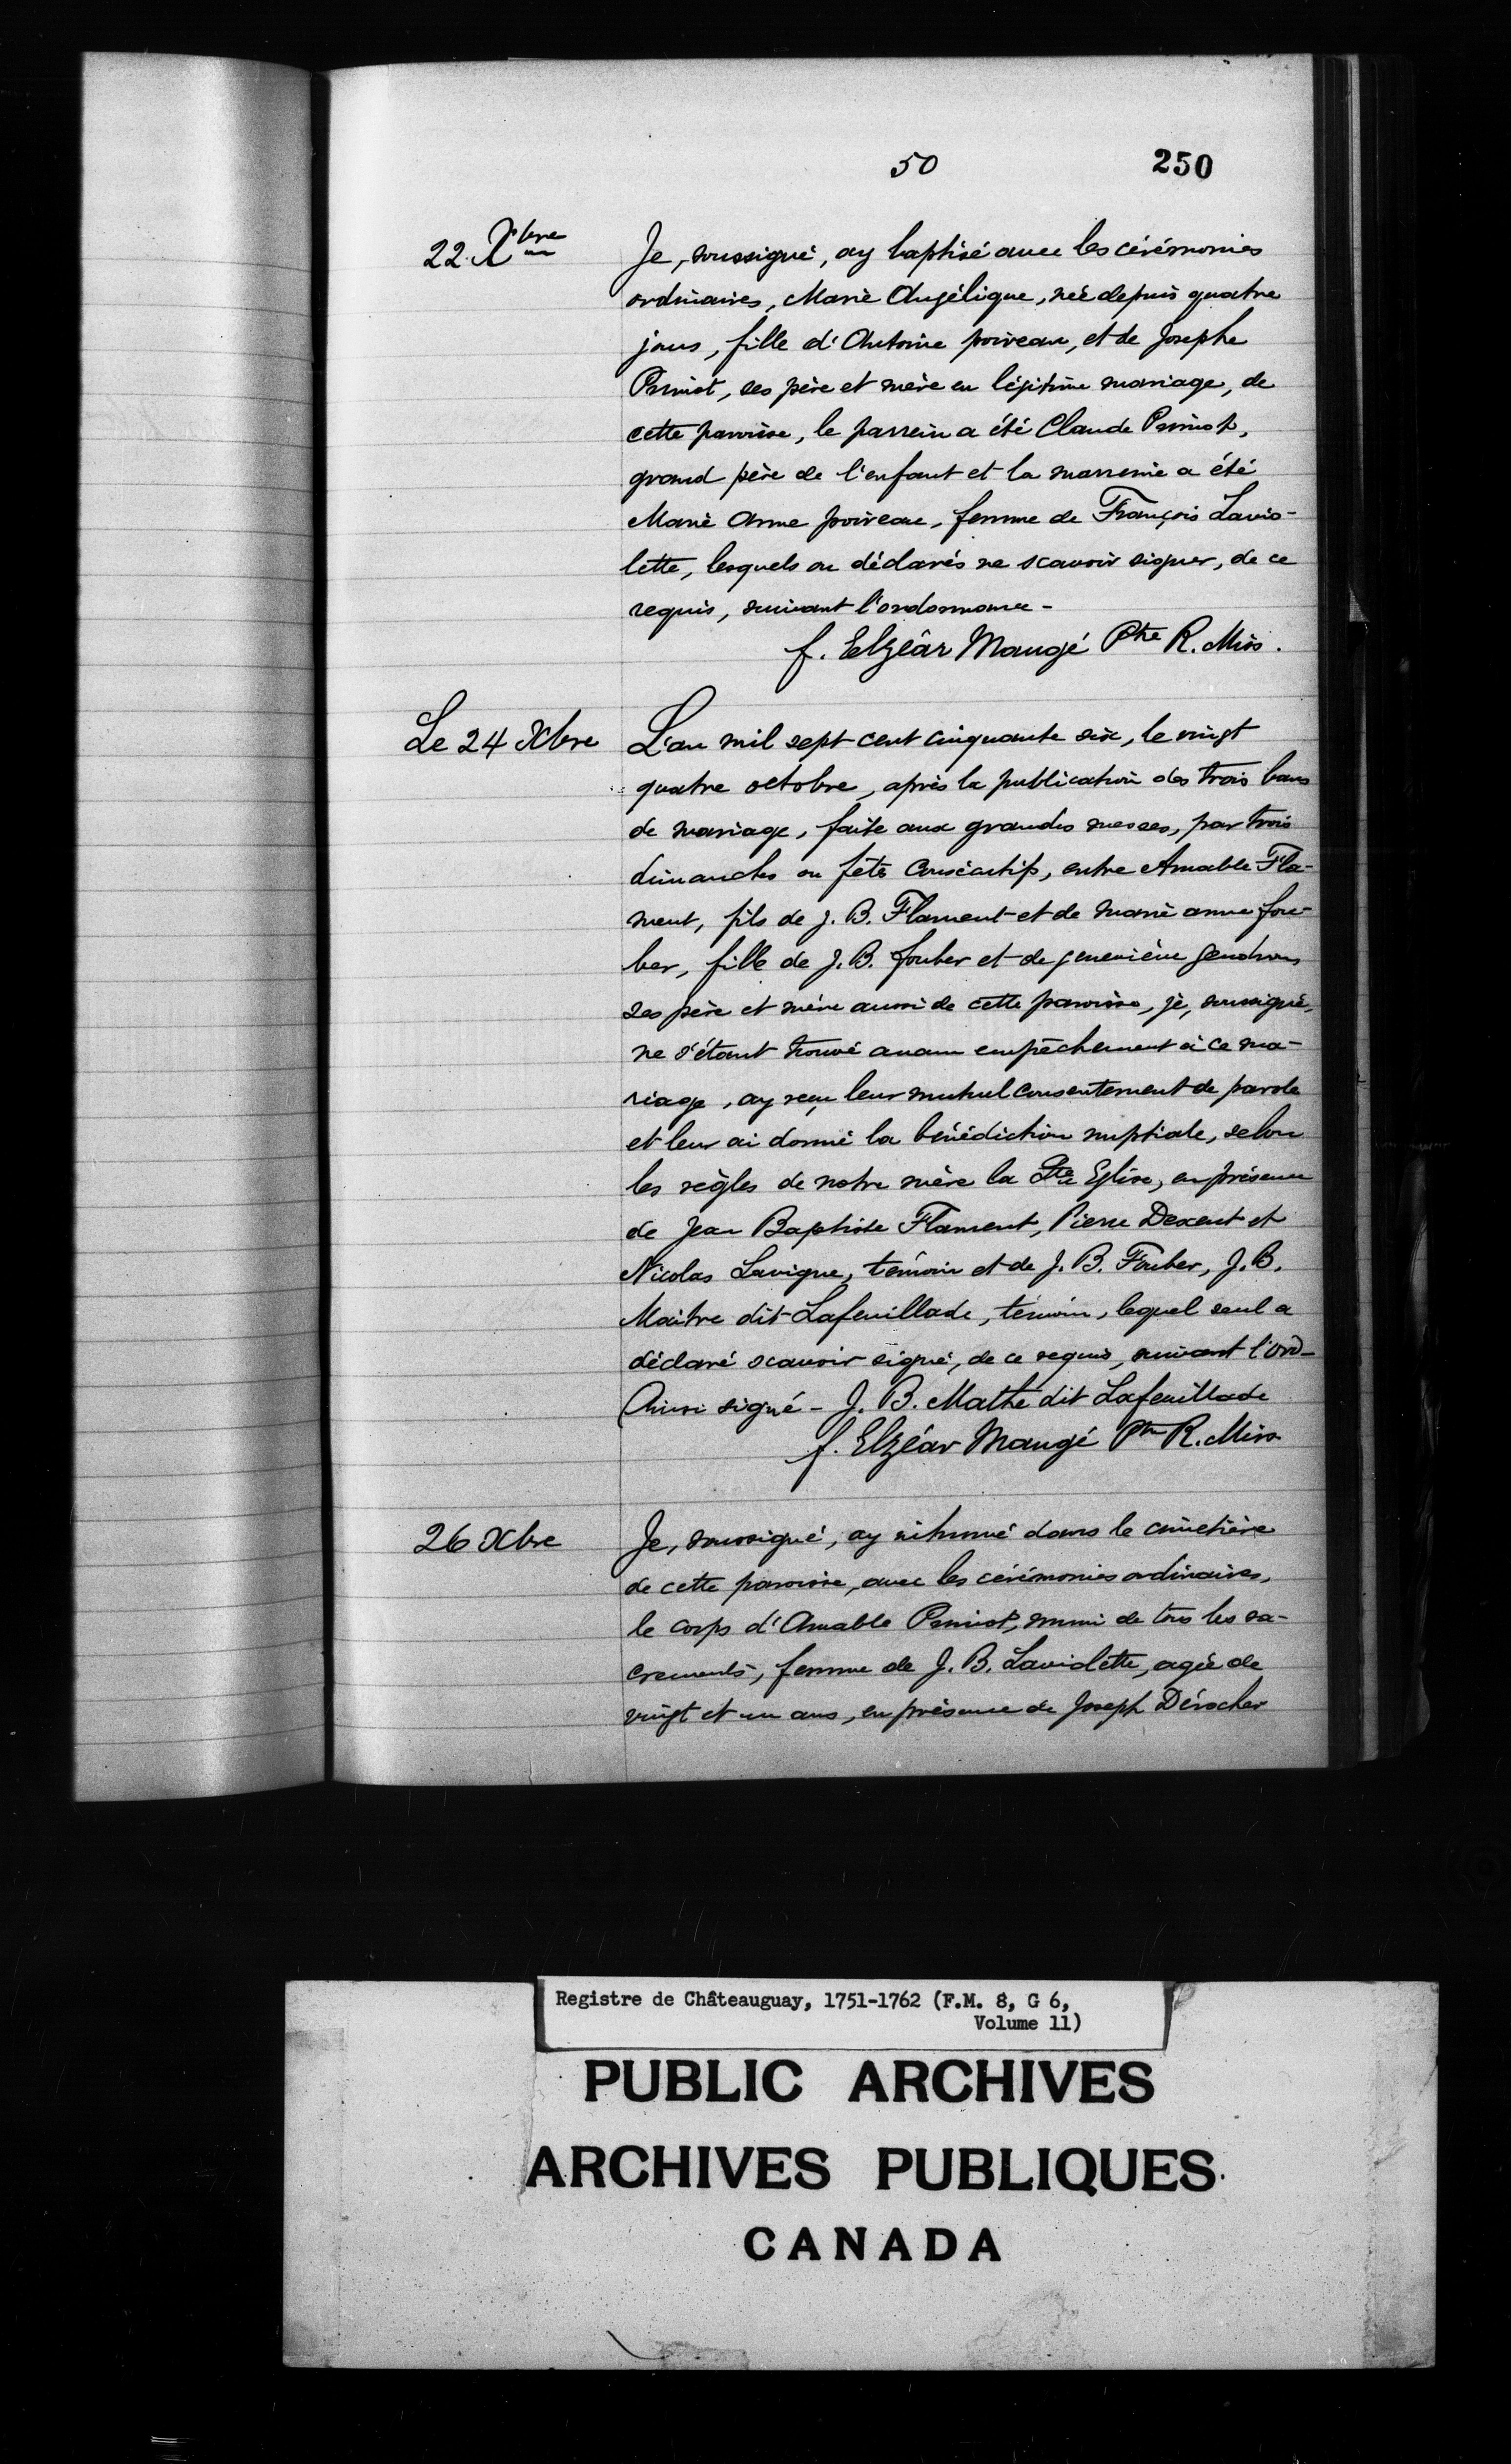 50 250
22. Xbre
Je, soussigné, ay baptisé avec les cérémonies
ordinaires, Marie Angélique, née depuis quatre
jours, fille d'Antoine poiveau, et de Josephe
Primot, ses père et mère en légitime mariage, de
cette paroisse, le parrein a été Claude Primot,
grand père de l'enfant et la marreine a été
Marie Anne poiveau, femme de François Lavio-
lette, lesquels on déclarés ne scavoir signer, de ce
requis, suivant l'ordonnance -
f. Elzéar Maugé Ptre R. Miss.
Le 24 Xbre
L'an mil sept cent cinquante six, le vingt
quatre octobre, après la publication des trois bans
de mariage, faite aux grandes messes, par trois
dimanches ou fêtes consécutifs, entre Amable Fla-
ment, fils de J. B. Flament et de marie anne fou-
ber, fille de J. B. fouber et de geneviève gendrons
ses père et mère aussi de cette paroisse, je, soussigné,
ne s'étant trouvé aucun empêchement à ce ma-
riage, ay reçu leur mutuel consentement de parole
et leur ai donné la bénédiction nuptiale, selon
les règles de notre mère la Ste Eglise, en présence
de Jean Baptiste Flament, Pierre Dexent et
Nicolas Lavigne, témoin et de J. B. Fouber, J. B.
Maitre dit Lafeuillade, témoin, lequel seul a
déclaré scavoir signé, de ce requis, suivant l'ord-
Ainsi signé - J. B. Mathe dit Lafeuillade
f. Elzéar Maugé Ptre R. Miss
26 Xbre
Je, soussigné, ay inhumé dans le cimetière
de cette paroisse, avec les cérémonies ordinaires,
le corps d'Amable Primot, muni de tous les sa-
crements, femme de J. B. Laviolette, agée de
vingt et un ans, en présence de Joseph Dérocher
Registre de Châteauguay, 1751-1762 (F.M. 8, G 6,
Volume 11)
PUBLIC ARCHIVES
ARCHIVES PUBLIQUES
CANADA